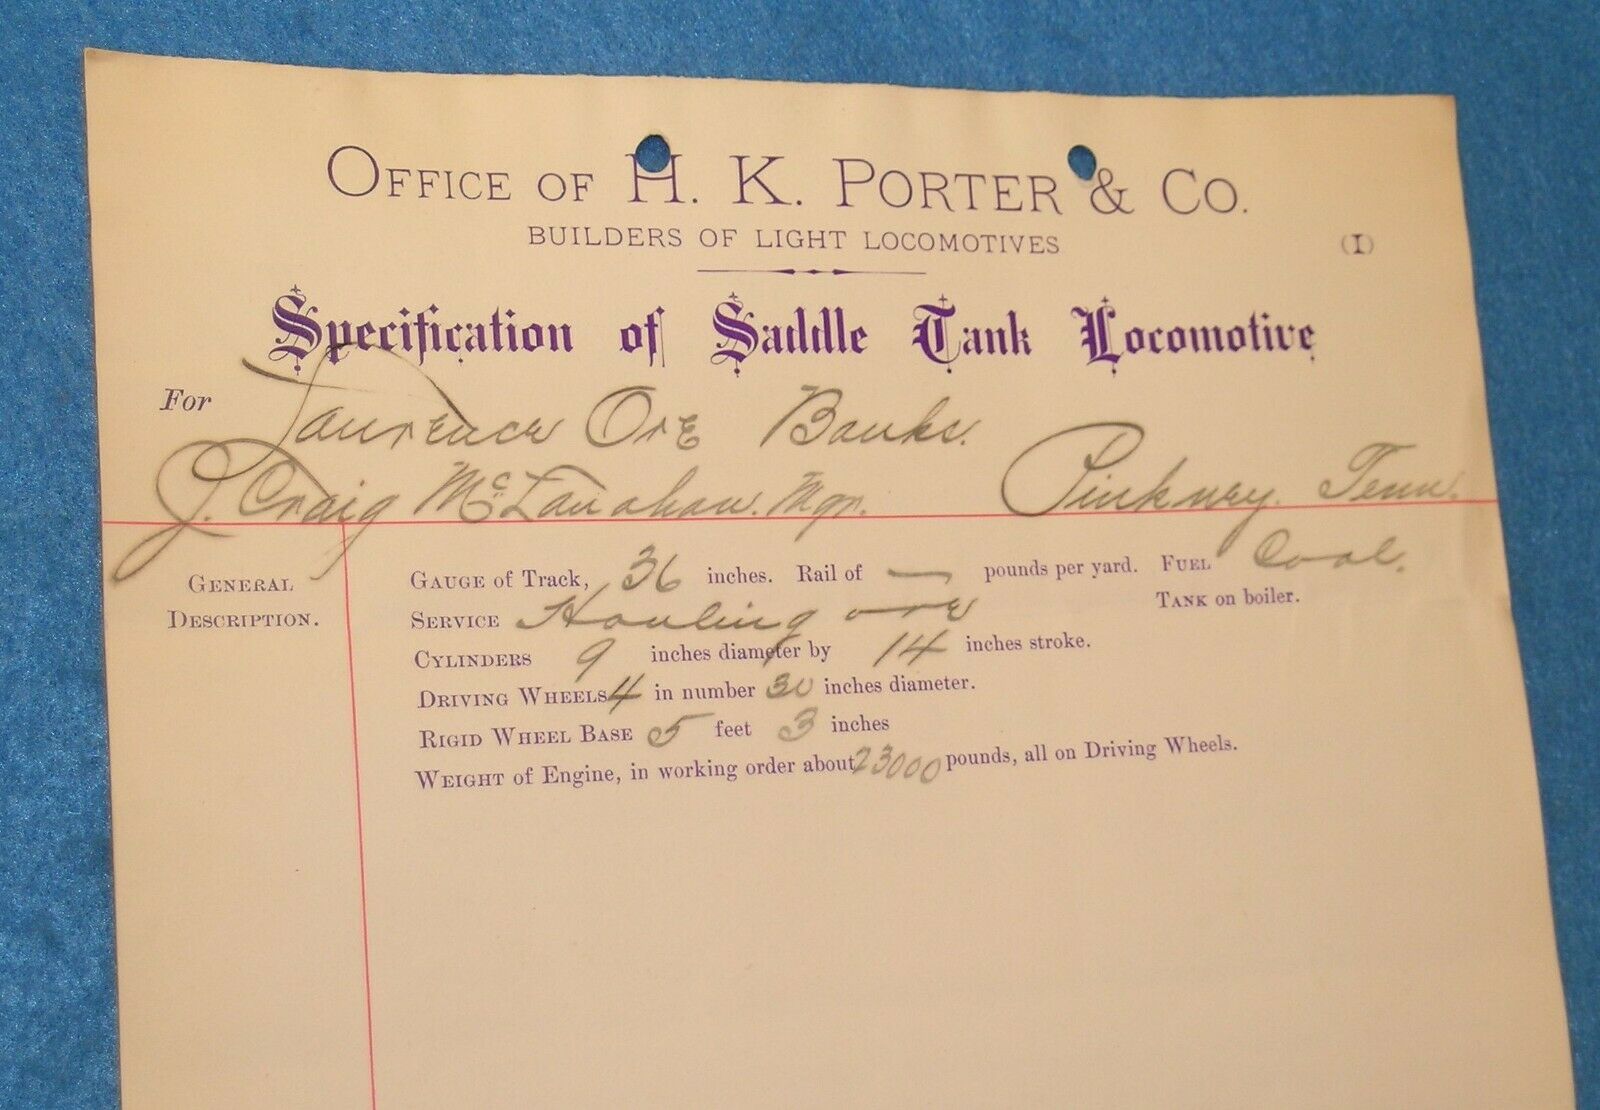 OFFICE OF H. K. PORTER & CO.
BUILDERS OF LIGHT LOCOMOTIVES
(I)
Specification of Saddle Tank Locomotive
For Laurence Ore Banks.
J. Craig McLanahan. Mgr. Pinkney. Tenn.
GENERAL DESCRIPTION.
GAUGE of Track, 36 inches. Rail of — pounds per yard. FUEL Coal.
SERVICE Hauling ore TANK on boiler.
CYLINDERS 9 inches diameter by 14 inches stroke.
DRIVING WHEELS 4 in number 30 inches diameter.
RIGID WHEEL BASE 5 feet 3 inches
WEIGHT of Engine, in working order about 23000 pounds, all on Driving Wheels.